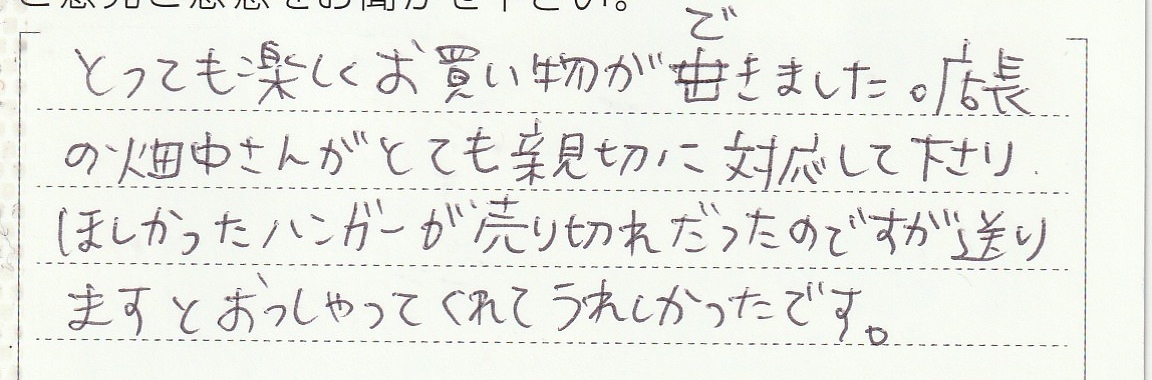 ご意見ご感想をお聞かせ下さい。
で
とっても楽しくお買い物が出きました。店長
の畑中さんがとても親切に対応して下さり
ほしかったハンガーが売り切れだったのですが送り
ますとおっしゃってくれてうれしかったです。